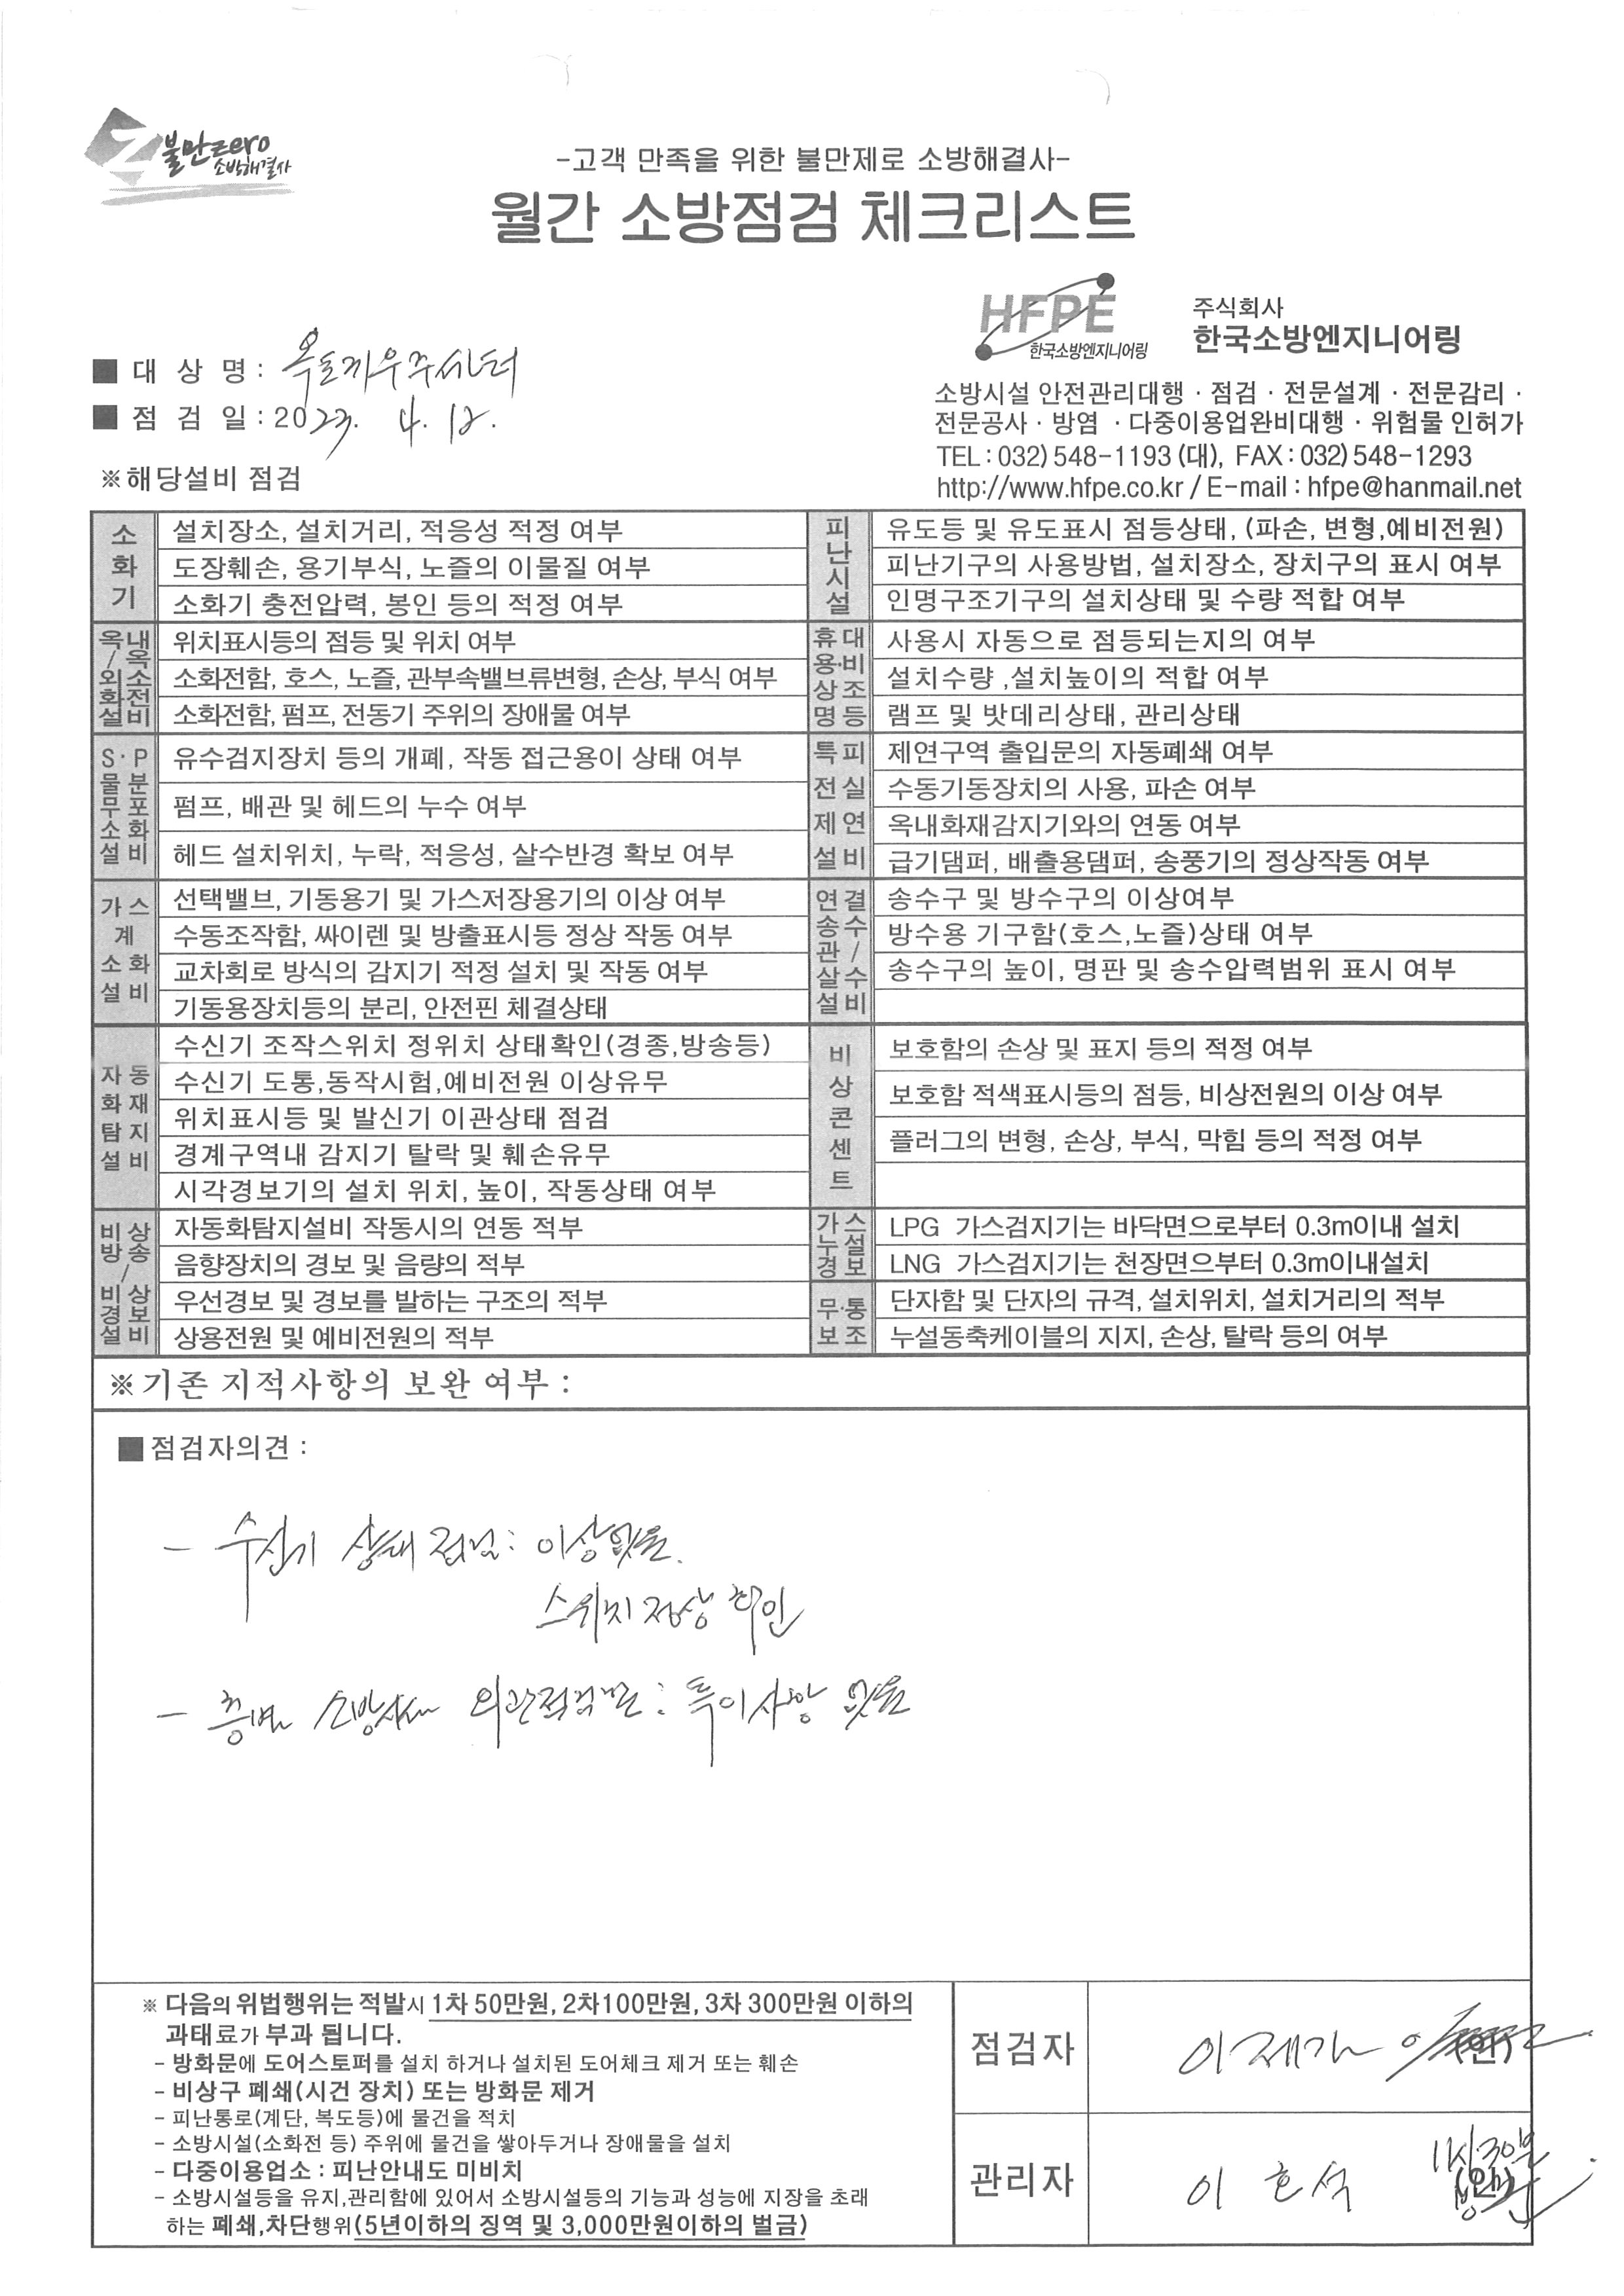 불만zero
소방해결사
-고객 만족을 위한 불만제로 소방해결사-
월간 소방점검 체크리스트
HFPE
한국소방엔지니어링
주식회사
한국소방엔지니어링
■ 대 상 명 : 옥토끼우주센터
■ 점 검 일 : 2023. 4. 12.
※해당설비 점검
소방시설 안전관리대행 · 점검 · 전문설계 · 전문감리 ·
전문공사 · 방염 · 다중이용업완비대행 · 위험물 인허가
TEL : 032) 548-1193 (대), FAX : 032) 548-1293
http://www.hfpe.co.kr / E-mail : hfpe@hanmail.net
소화기
설치장소, 설치거리, 적응성 적정 여부
도장훼손, 용기부식, 노즐의 이물질 여부
소화기 충전압력, 봉인 등의 적정 여부
피난시설
유도등 및 유도표시 점등상태, (파손, 변형,예비전원)
피난기구의 사용방법, 설치장소, 장치구의 표시 여부
인명구조기구의 설치상태 및 수량 적합 여부
옥내/옥외소화전설비
위치표시등의 점등 및 위치 여부
소화전함, 호스, 노즐, 관부속밸브류변형, 손상, 부식 여부
소화전함, 펌프, 전동기 주위의 장애물 여부
휴대용·비상조명등
사용시 자동으로 점등되는지의 여부
설치수량 ,설치높이의 적합 여부
램프 및 밧데리상태, 관리상태
S·P물분무포소화설비
유수검지장치 등의 개폐, 작동 접근용이 상태 여부
펌프, 배관 및 헤드의 누수 여부
헤드 설치위치, 누락, 적응성, 살수반경 확보 여부
특피전실제연설비
제연구역 출입문의 자동폐쇄 여부
수동기동장치의 사용, 파손 여부
옥내화재감지기와의 연동 여부
급기댐퍼, 배출용댐퍼, 송풍기의 정상작동 여부
가스계소화설비
선택밸브, 기동용기 및 가스저장용기의 이상 여부
수동조작함, 싸이렌 및 방출표시등 정상 작동 여부
교차회로 방식의 감지기 적정 설치 및 작동 여부
기동용장치등의 분리, 안전핀 체결상태
연결송수관/살수설비
송수구 및 방수구의 이상여부
방수용 기구함(호스,노즐)상태 여부
송수구의 높이, 명판 및 송수압력범위 표시 여부
자동화재탐지설비
수신기 조작스위치 정위치 상태확인(경종,방송등)
수신기 도통,동작시험,예비전원 이상유무
위치표시등 및 발신기 이관상태 점검
경계구역내 감지기 탈락 및 훼손유무
시각경보기의 설치 위치, 높이, 작동상태 여부
비상콘센트
보호함의 손상 및 표지 등의 적정 여부
보호함 적색표시등의 점등, 비상전원의 이상 여부
플러그의 변형, 손상, 부식, 막힘 등의 적정 여부
비상방송/비상경보설비
자동화탐지설비 작동시의 연동 적부
음향장치의 경보 및 음량의 적부
우선경보 및 경보를 발하는 구조의 적부
상용전원 및 예비전원의 적부
가스누설경보
LPG 가스검지기는 바닥면으로부터 0.3m이내 설치
LNG 가스검지기는 천장면으부터 0.3m이내설치
무·통보조
단자함 및 단자의 규격, 설치위치, 설치거리의 적부
누설동축케이블의 지지, 손상, 탈락 등의 여부
※기존 지적사항의 보완 여부 :
■점검자의견 :
- 수신기 상태 점검: 이상없음.
스위치 정상 확인
- 층별 소방시설 외관점검: 특이사항 없음
※ 다음의 위법행위는 적발시 1차 50만원, 2차100만원, 3차 300만원 이하의
과태료가 부과 됩니다.
- 방화문에 도어스토퍼를 설치 하거나 설치된 도어체크 제거 또는 훼손
- 비상구 폐쇄(시건 장치) 또는 방화문 제거
- 피난통로(계단, 복도등)에 물건을 적치
- 소방시설(소화전 등) 주위에 물건을 쌓아두거나 장애물을 설치
- 다중이용업소 : 피난안내도 미비치
- 소방시설등을 유지,관리함에 있어서 소방시설등의 기능과 성능에 지장을 초래
하는 폐쇄,차단행위(5년이하의 징역 및 3,000만원이하의 벌금)
점검자
(인)
관리자
이 흔석
11시30분
(인)